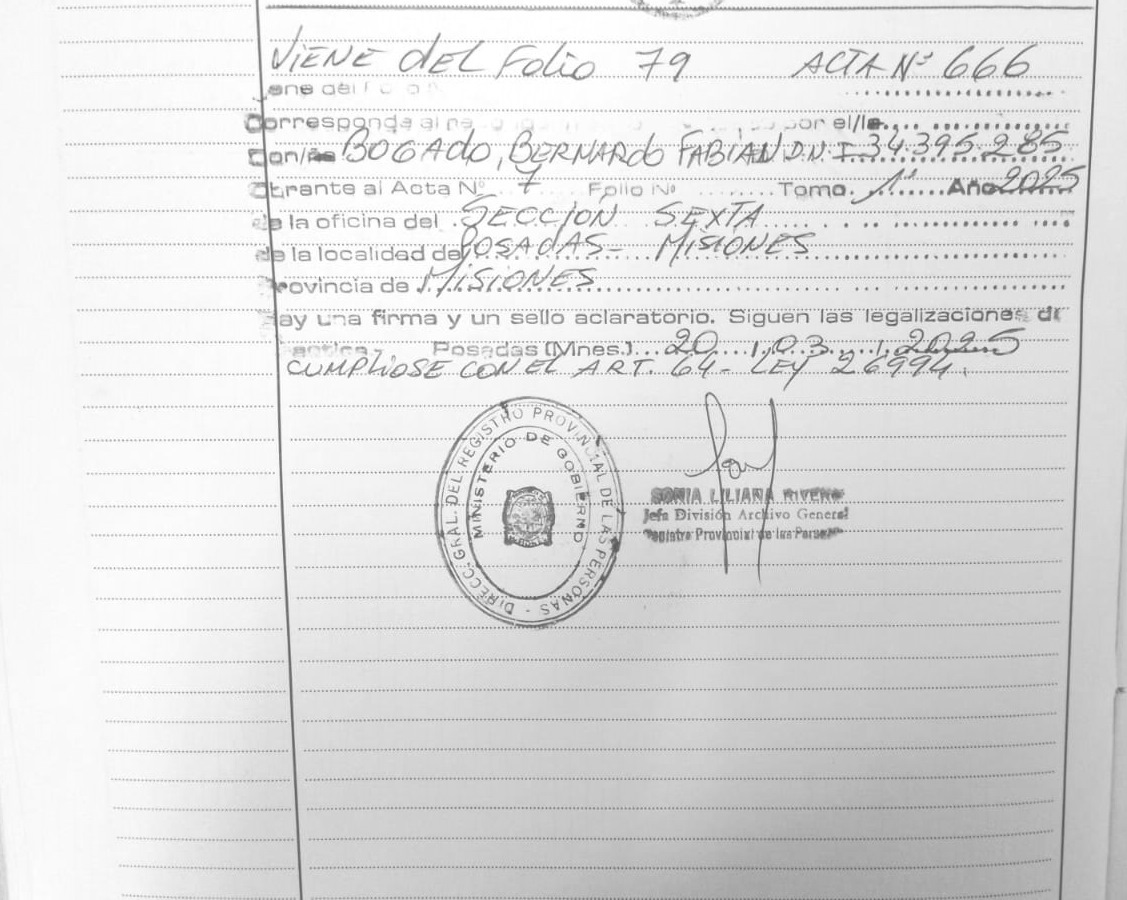 VIENE DEL FOLIO 79 ACTA Nº 666
Corresponde al por el/la
Don/ña BOGADO, BERNARDO FABIAN D.N.I 34.395.285
Obrante al Acta Nº 7 Folio Nº Tomo 1º Año 2025
de la oficina del SECCION SEXTA
de la localidad de POSADAS - MISIONES
Provincia de MISIONES
ay una firma y un sello aclaratorio. Siguen las legalizaciones de
Posadas (Mnes.) 20 / 03 / 2025
CUMPLIOSE CON EL ART. 64 - LEY 26994.
DIRECC. GRAL. DEL REGISTRO PROVINCIAL DE LAS PERSONAS -
MINISTERIO DE GOBIERNO
SONIA LILIANA RIVERO
Jefa División Archivo General
Registro Provincial de las Personas